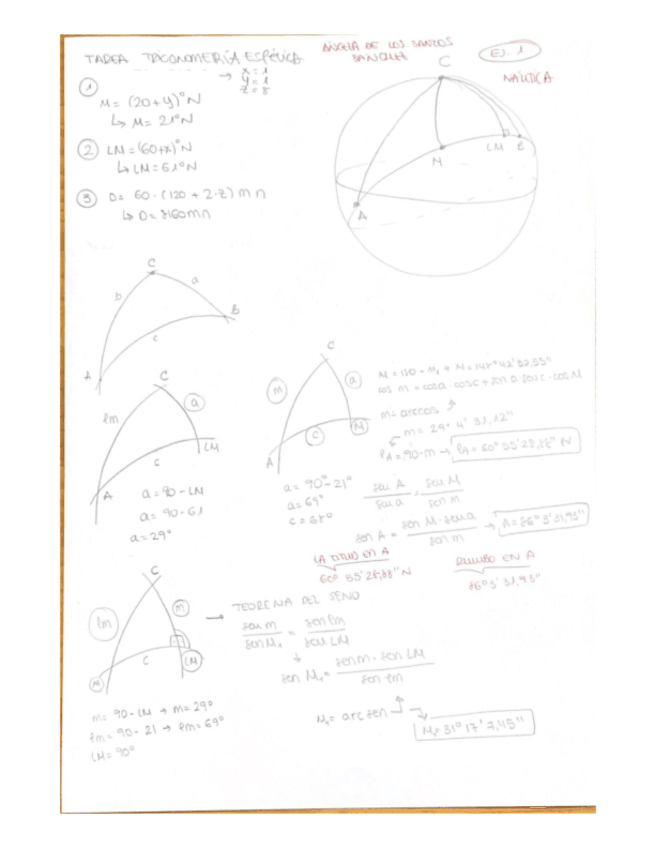 TAREA TRIGONOMETRÍA ESFÉRICA
ÁNGELA DE LOS SANTOS
SÁNCHEZ
EJ. 1
NÁUTICA
→ x = 1
y = 1
z = 8
①
M = (20+y)°N
↳ M = 21°N
② LM = (60+x)°N
↳ LM = 61°N
③ D = 60·(120 + 2·z) mn
↳ D = 8160mn
C
M
LM
B
A
C
b
a
B
c
A
C
lm
a
LM
c
A
a = 90 - LM
a = 90 - 61
a = 29°
C
m
a
c
M
A
a = 90° - 21°
a = 69°
M = 180 - M₁ → M = 148° 42' 52,55"
cos m = cos a · cos c + sen a · sen c · cos M
m = arccos
m = 29° 4' 31,12"
lA = 90 - m → lA = 60° 55' 28,88" N
sen A / sen a = sen M / sen m
sen A = sen M · sen a / sen m → A = 86° 3' 31,93"
LATITUD EN A
60° 55' 28,88" N
RUMBO EN A
86° 3' 31,93"
C
lm
m
c
LM
M
m = 90 - LM → m = 29°
lm = 90 - 21 → lm = 69°
LM = 90°
→ TEOREMA DEL SENO
sen m / sen M₁ = sen lm / sen LM
sen M₁ = sen m · sen LM / sen lm
M₁ = arc sen
M₁ = 31° 17' 7,45"